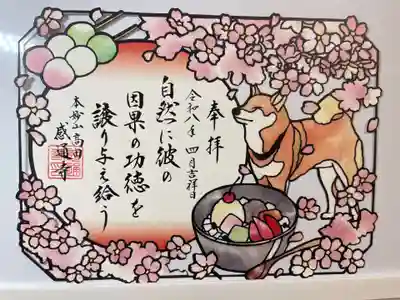 奉拝
令和八年 四月吉祥日
自然に彼の
因果の功徳を
譲り与え給う
本妙山高田
感通寺